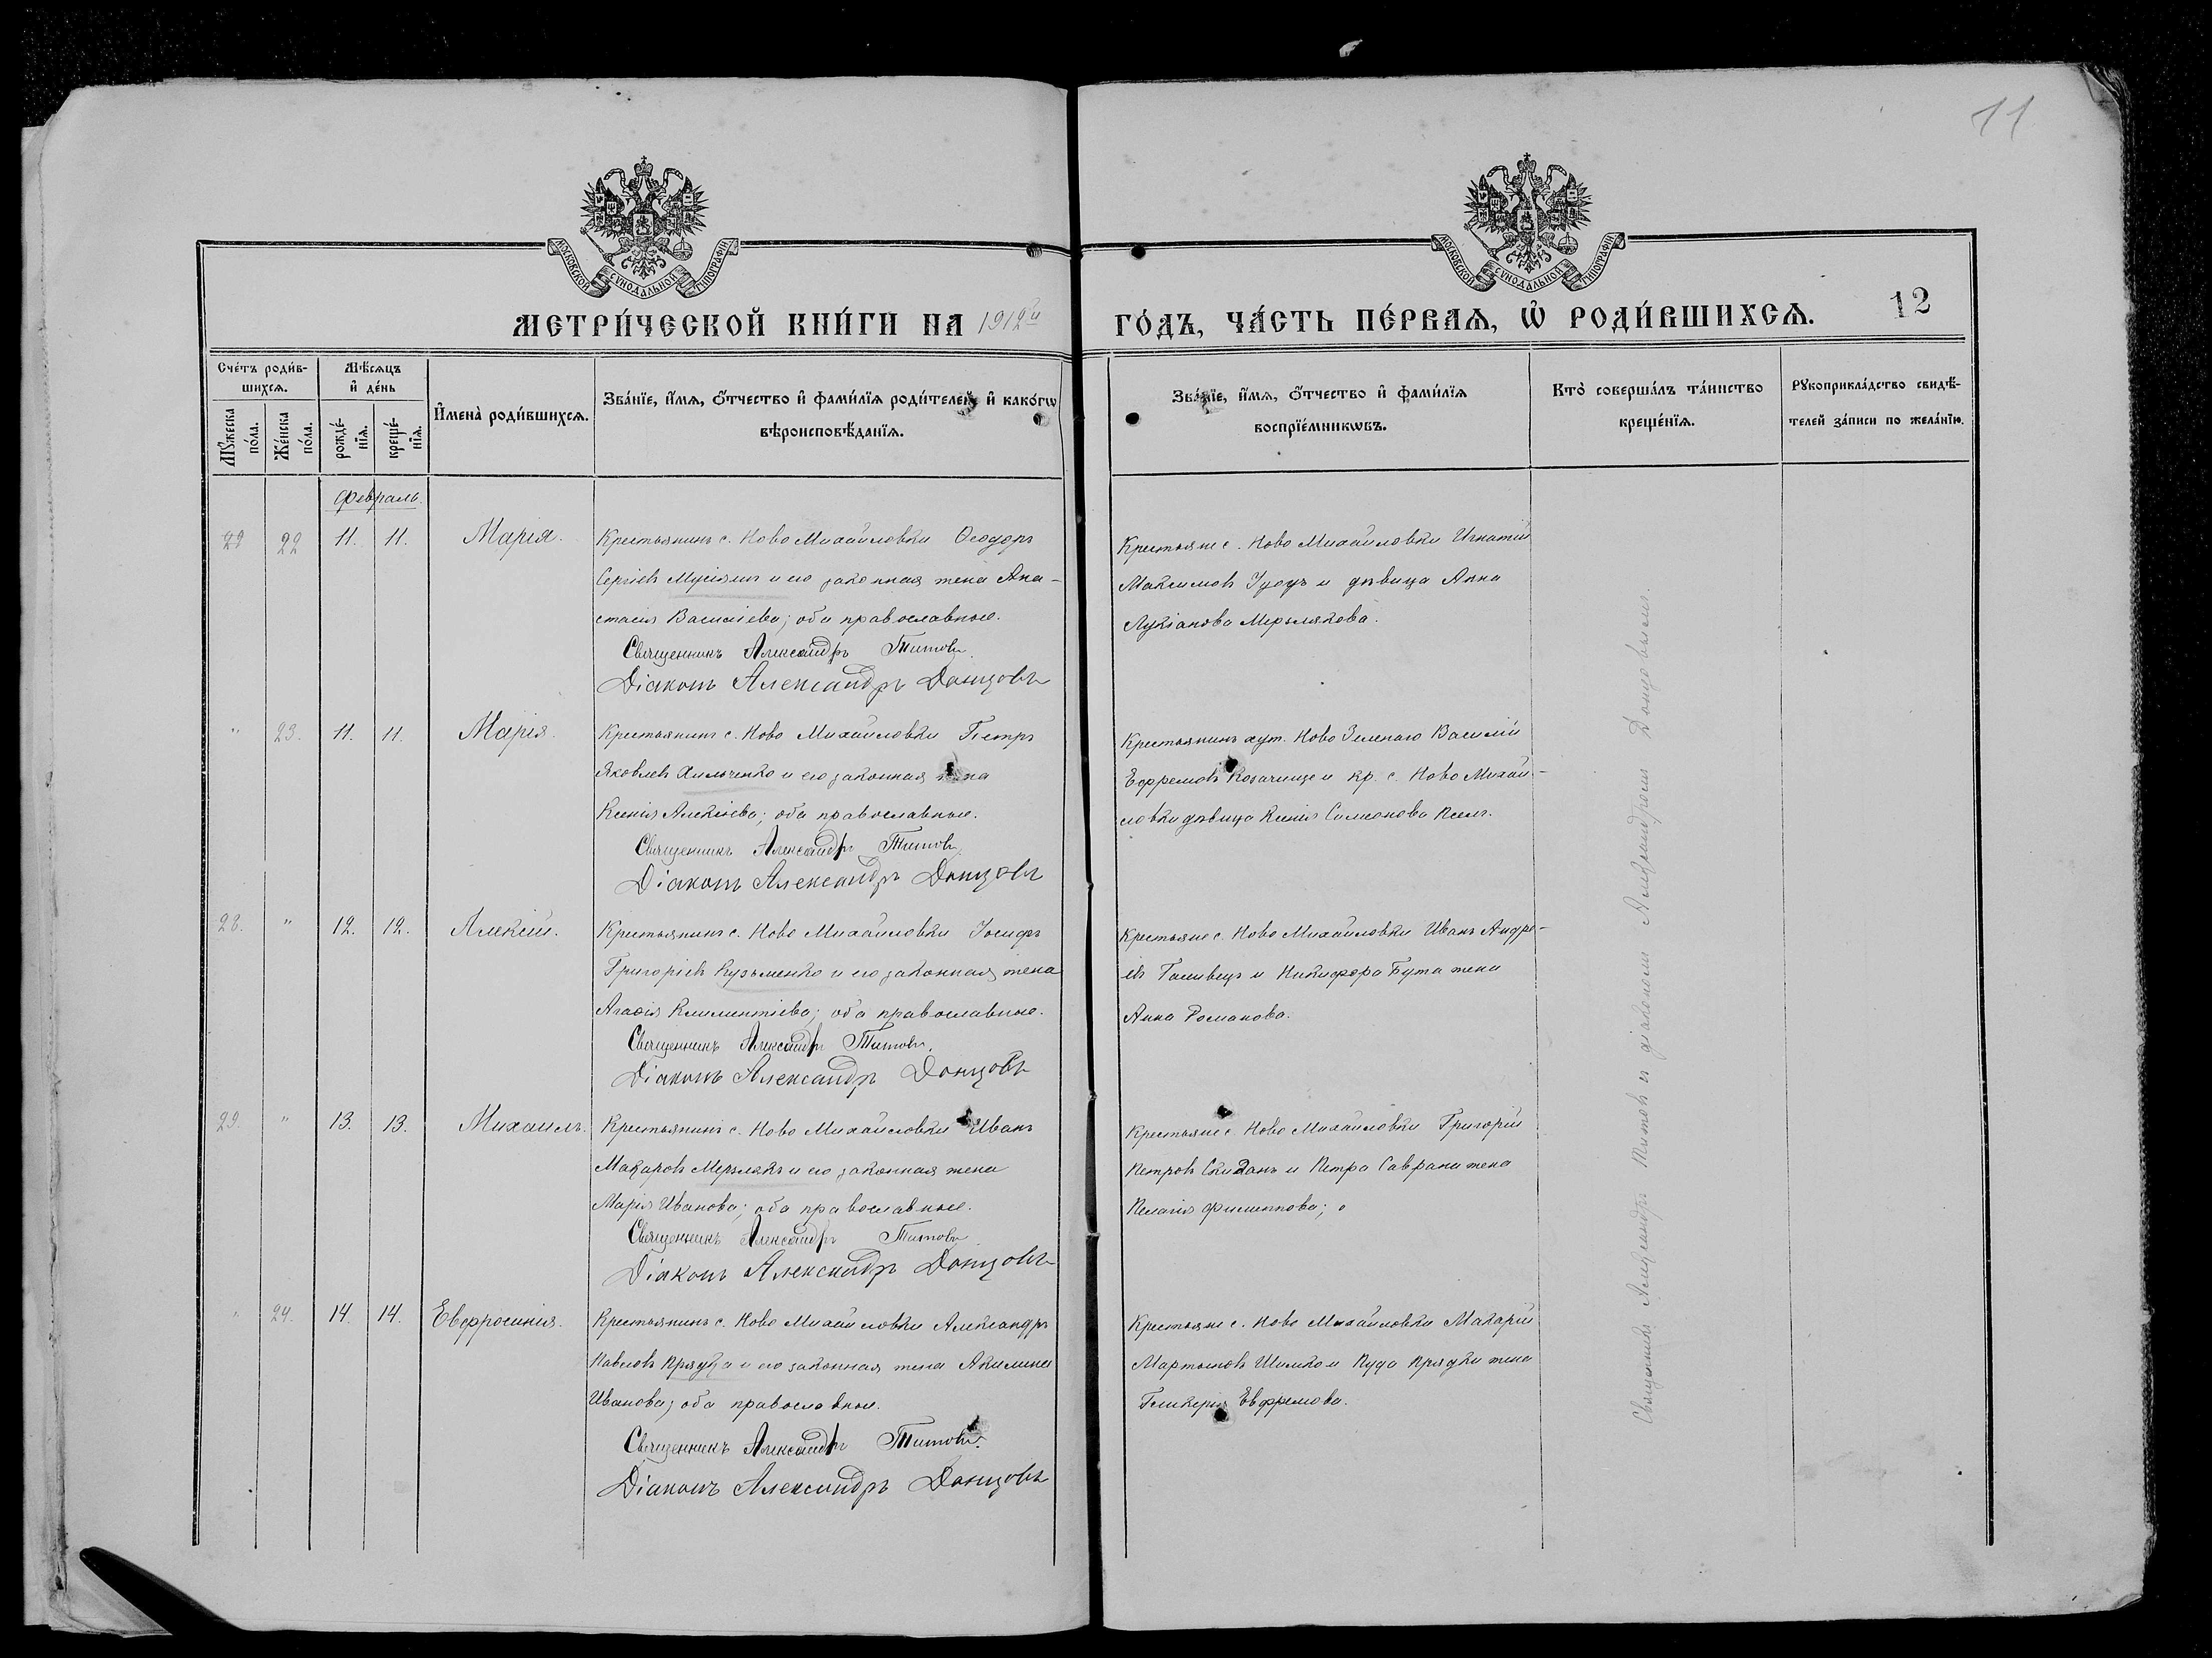 11
МОСКОВСКОЙ СѴНОДАЛЬНОЙ ТИПОГРАФІИ
МОСКОВСКОЙ СѴНОДАЛЬНОЙ ТИПОГРАФІИ
МЕТРИ́ЧЕСКОЙ КНИ́ГИ НА 1912й
ГО́ДЪ, ЧА́СТЬ ПЕ́РВАѦ, Ѡ҆ РОДИ́ВШИХСѦ. 12
Сче́тъ роди́в-
шихсѧ.
Мꙋ́жеска по́ла.
Же́нска по́ла.
Мѣ́сѧцъ
и҆ де́нь
рожде́-
нїѧ.
креще́-
нїѧ.
И҆мена̀ роди́вшихсѧ.
Зва́нїе, и҆́мѧ, ѻ҆́тчество и҆ фами́лїѧ роди́телей и҆ како́гѡ
вѣроисповѣ́данїѧ.
Зва́нїе, и҆́мѧ, ѻ҆́тчество и҆ фами́лїѧ
воспрїе́мникѡвъ.
Кто̀ соверша́лъ та́инство
креще́нїѧ.
Рꙋкоприкла́дство свидѣ́-
телей за́писи по жела́нїю.
Февраль.
22 11. 11. Марія.
Крестьянинъ с. Ново Михайловки Ѳеодоръ
Сергіевъ и его законная жена Ана-
стасія Василіева; оба православные.
Священникъ Александръ Титовъ
Діаконъ Александръ Донцовъ
Крестьяне с. Ново Михайловки Игнатій
Максимовъ и дѣвица Анна
Лукіанова Мерзлякова.
" 23. 11. 11. Марія.
Крестьянинъ с. Ново Михайловки Петръ
Яковлевъ Хильченко и его законная жена
Ксенія Алексіева; оба православные.
Священникъ Александръ Титовъ
Діаконъ Александръ Донцовъ
Крестьянинъ хут. Ново Зеленаго Василій
Ефремовъ Козачище и кр. с. Ново Михай-
ловки дѣвица Ксенія Симеонова
28. " 12. 12. Алексій.
Крестьянинъ с. Ново Михайловки Іосифъ
Григоріевъ Кузьменко и его законная жена
Агаѳія Климентіева; оба православные.
Священникъ Александръ Титовъ.
Діаконъ Александръ Донцовъ
Крестьяне с. Ново Михайловки Иванъ Андре-
евъ и Никифора Бута жена
Анна Романова.
29. " 13. 13. Михаилъ.
Крестьянинъ с. Ново Михайловки Иванъ
Макаровъ Мерзлякъ и его законная жена
Марія Иванова; оба православные.
Священникъ Александръ Титовъ
Діаконъ Александръ Донцовъ
Крестьяне с. Ново Михайловки Григорій
Петровъ Скиданъ и Петра Саврана жена
Пелагія Филиппова;
" 24. 14. 14. Евфросинія.
Крестьянинъ с. Ново Михайловки Александръ
Павловъ Прядка и его законная жена Акилина
Иванова; оба православные.
Священникъ Александръ Титовъ.
Діаконъ Александръ Донцовъ
Крестьяне с. Ново Михайловки Макарій
Мартыновъ Шимко и Прядки жена
Гликерія Евфремова.
Священникъ Александръ Титовъ и діакономъ Александромъ Донцовымъ.